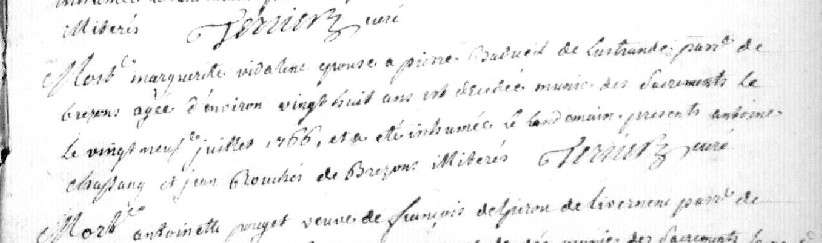 illiterés Ternier curé
Mort.te marguerite vidaline epouse a pierre Badueil de Lustrande par.se de
brezons agée d'environ vingt huit ans est decedée munie des Sacrements le
le vingt neuf juillet 1766, et a eté inhumée le landemain. presents antoine
chassang et jean Rouchés de Brezons illiterés Ternier curé
Mort.te antoinette pouget veuve de françois delpiron de livernenc par.se de
munie des Sacrements